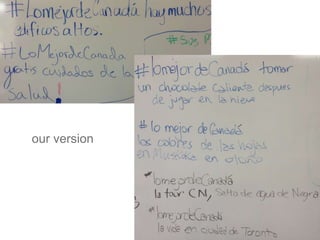 #LomejordeCanadá hay muchos
edificios altos.
#Sus P
#LoMejordeCanada
gratis cuidados de la
Salud!
our version
#lomejordeCanadá tomar
un chocolate caliente despues
de jugar en la nieve
#lo mejor de Canadá
los colores de las hojas
en Muskoka en otoño
#lomejordeCanadá
la torr CN, Salto de agua de Niagra
#lomejordeCanadá
la vida en ciudad de Toronto